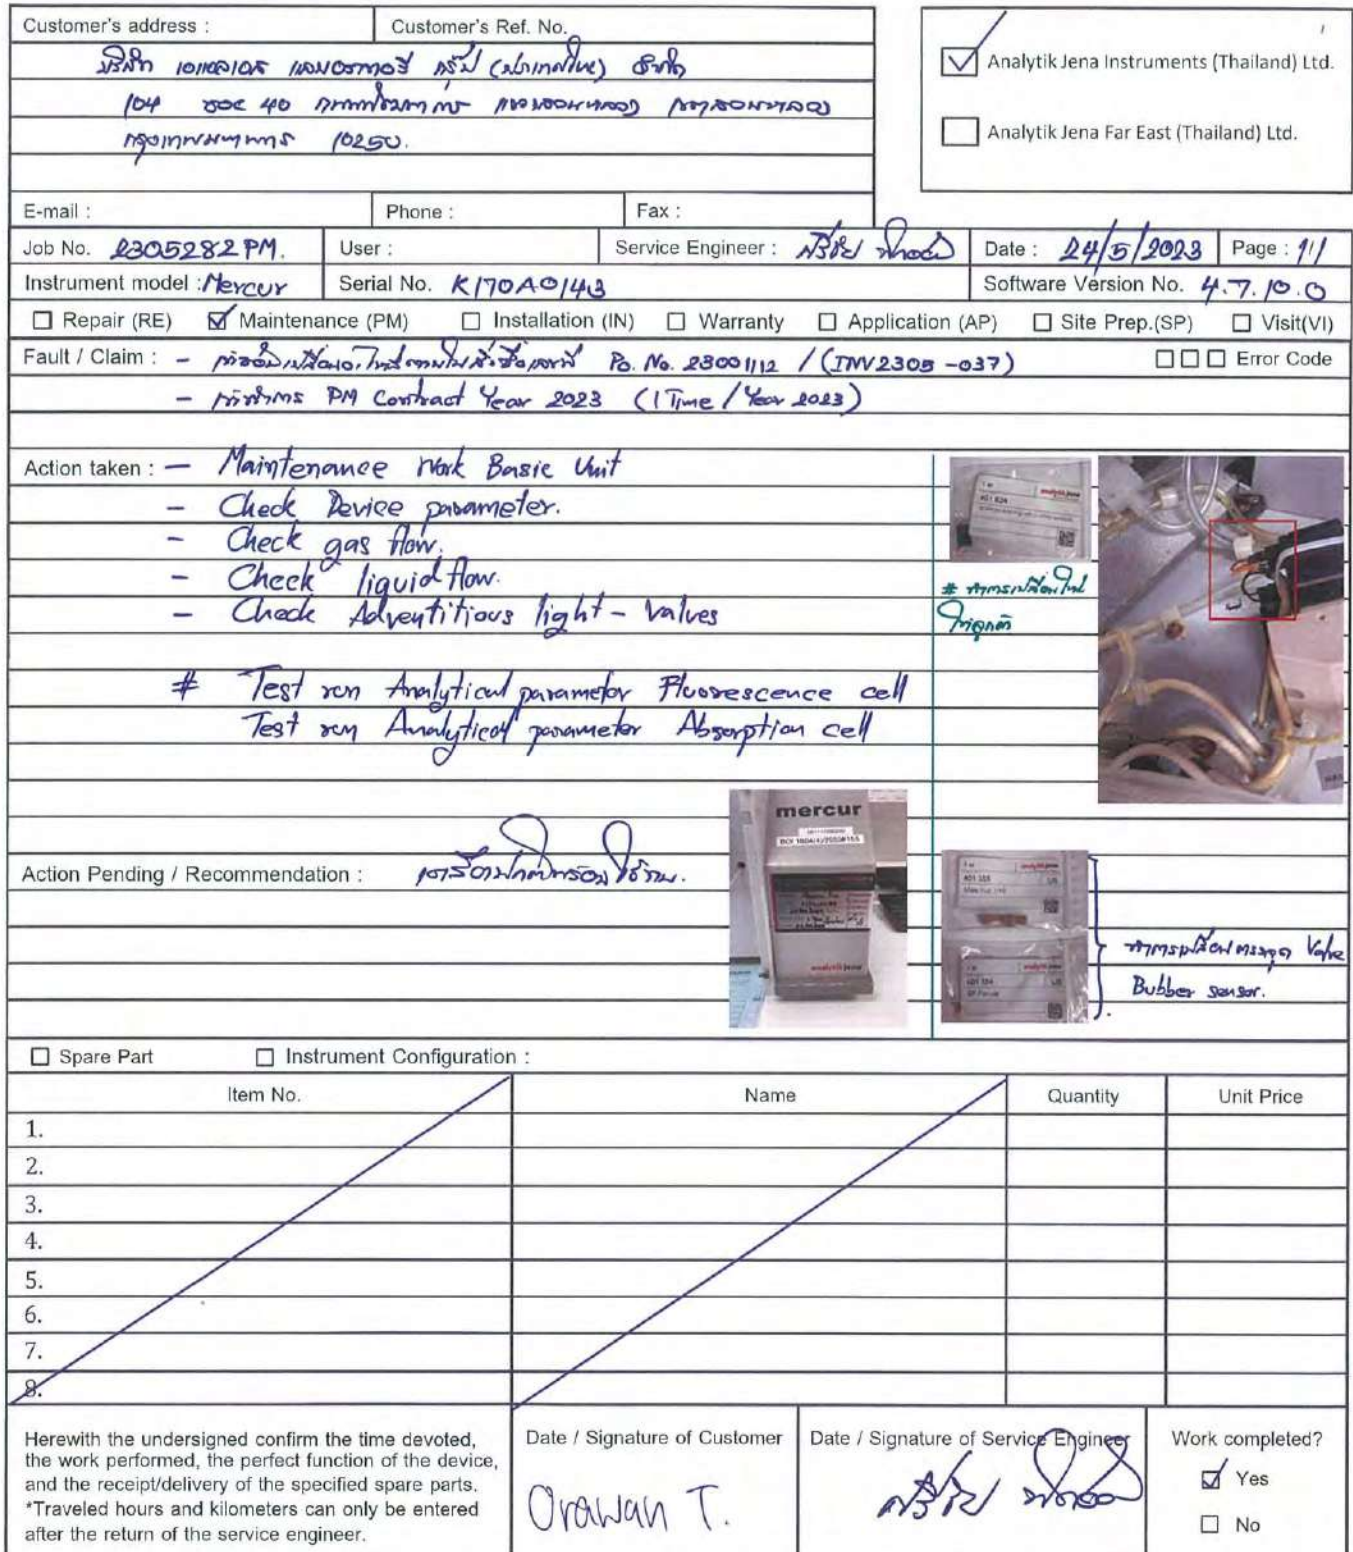 Customer's address :
Customer's Ref. No.
บริษัท เอแอลเอส แลบอราทอรี่ กรุ๊ป (ประเทศไทย) จำกัด
104 ซอย 40
กรุงเทพมหานคร 10250.
Analytik Jena Instruments (Thailand) Ltd.
Analytik Jena Far East (Thailand) Ltd.
E-mail : Phone : Fax :
Job No. 2305282PM. User : Service Engineer : Date : 24/5/2023 Page : 1/1
Instrument model : Mercur Serial No. K170A0143 Software Version No. 4.7.10.0
Repair (RE) Maintenance (PM) Installation (IN) Warranty Application (AP) Site Prep.(SP) Visit(VI)
Fault / Claim : - PO. No. 23001112 / (INV2305-037) Error Code
- PM Contract Year 2023 (1 Time / Year 2023)
Action taken : - Maintenance Work Basic Unit
- Check Device parameter.
- Check gas flow.
- Check liquid flow.
- Check Adventitious light - Valves
# Test run Analytical parameter Fluorescence cell
Test run Analytical parameter Absorption cell
# ทำการเปลี่ยนใหม่
ให้ลูกค้า
mercur
analytik jena
Action Pending / Recommendation : เครื่องปกติพร้อมใช้งาน.
ทำการเปลี่ยน Valve
Bubber sensor.
Spare Part Instrument Configuration :
Item No. Name Quantity Unit Price
1.
2.
3.
4.
5.
6.
7.
8.
Herewith the undersigned confirm the time devoted,
the work performed, the perfect function of the device,
and the receipt/delivery of the specified spare parts.
*Traveled hours and kilometers can only be entered
after the return of the service engineer.
Date / Signature of Customer
Orawan T.
Date / Signature of Service Engineer
Work completed?
Yes
No